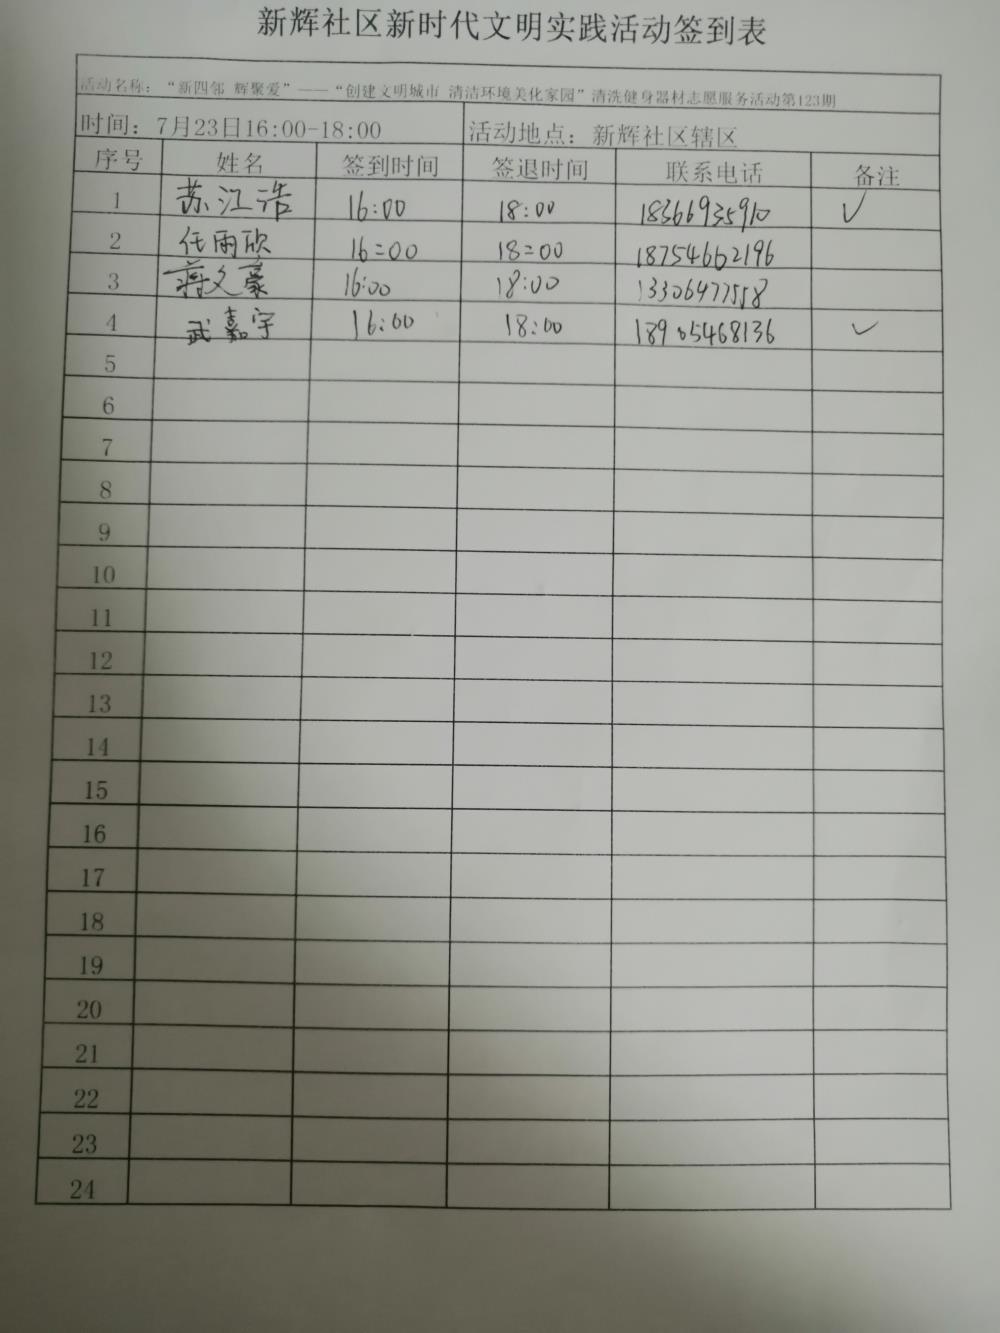 新辉社区新时代文明实践活动签到表
活动名称：“新四邻 辉聚爱”——“创建文明城市 清洁环境美化家园”清洗健身器材志愿服务活动第123期
时间：7月23日16:00-18:00 活动地点：新辉社区辖区
序号 姓名 签到时间 签退时间 联系电话 备注
1 苏江浩 16:00 18:00 18366935910 ✓
2 任雨欣 16=00 18=00 18754662196
3 蒋文豪 16:00 18:00 13306477558
4 武嘉宇 16:00 18:00 18905468136 ✓
5
6
7
8
9
10
11
12
13
14
15
16
17
18
19
20
21
22
23
24